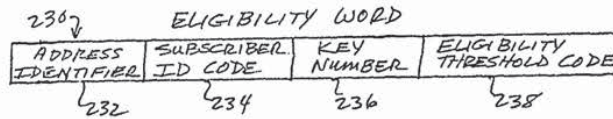 230
ELIGIBILITY WORD
ADDRESS IDENTIFIER
SUBSCRIBER ID CODE
KEY NUMBER
ELIGIBILITY THRESHOLD CODE
232
234
236
238